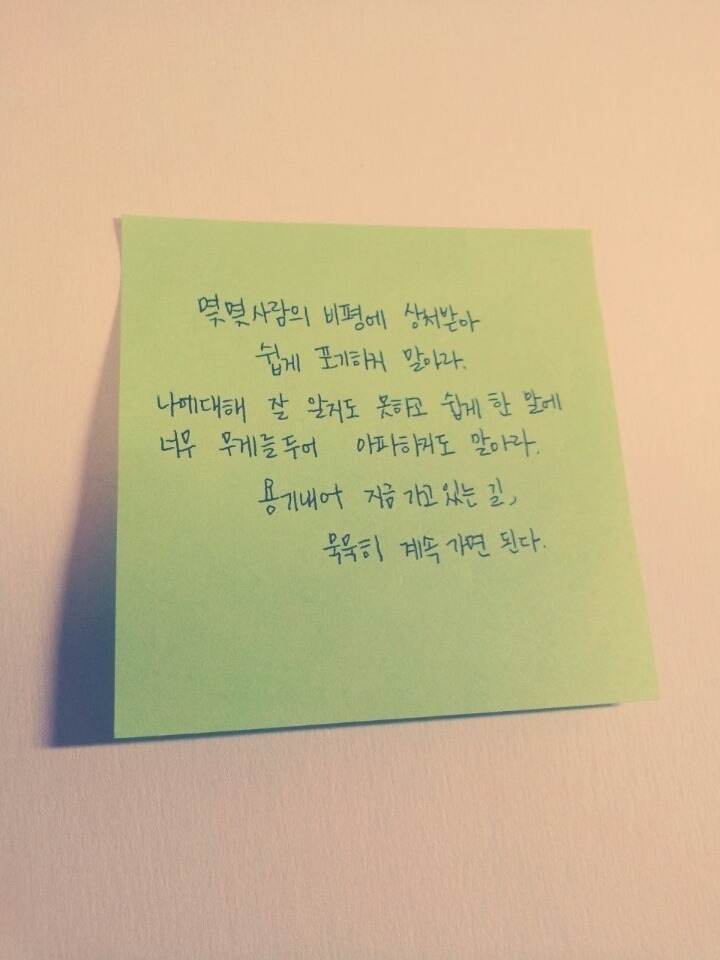 몇몇 사람의 비평에 상처받아
쉽게 포기하지 말아라.
나에대해 잘 알지도 못하고 쉽게 한 말에
너무 무게를 두어 아파하지도 말아라.
용기내어 지금 가고 있는 길,
묵묵히 계속 가면 된다.